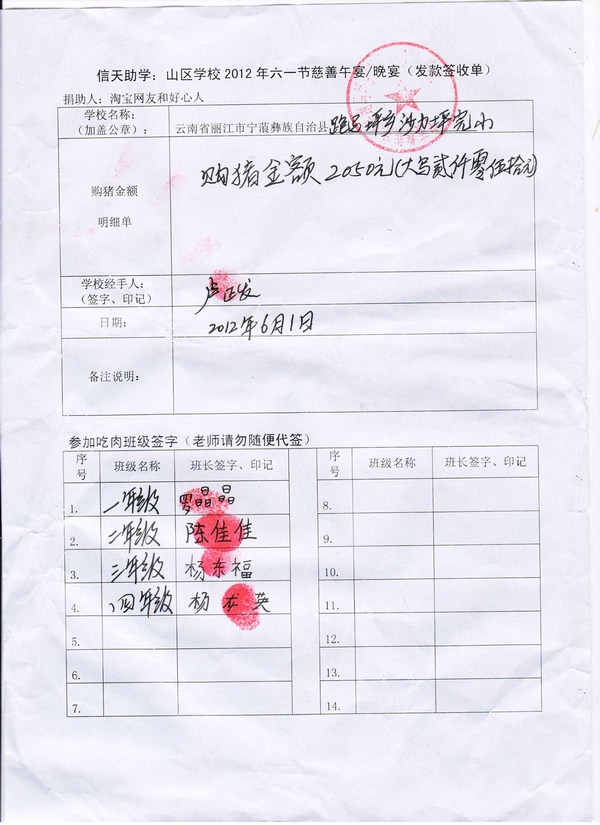 信天助学：山区学校2012年六一节慈善午宴/晚宴（发款签收单）
捐助人：淘宝网友和好心人
学校名称：
（加盖公章）：
云南省丽江市宁蒗彝族自治县跑马坪乡沙力坪完小
购猪金额
明细单
购猪金额2050元(大写贰仟零伍拾元)
学校经手人：
（签字、印记）
卢正发
日期：
2012年6月1日
备注说明：
参加吃肉班级签字（老师请勿随便代签）
序号 班级名称 班长签字、印记 序号 班级名称 班长签字、印记
1. 一年级 罗晶晶 8.
2. 二年级 陈佳佳 9.
3. 三年级 杨东福 10.
4. 四年级 杨 英 11.
5. 12.
6. 13.
7. 14.